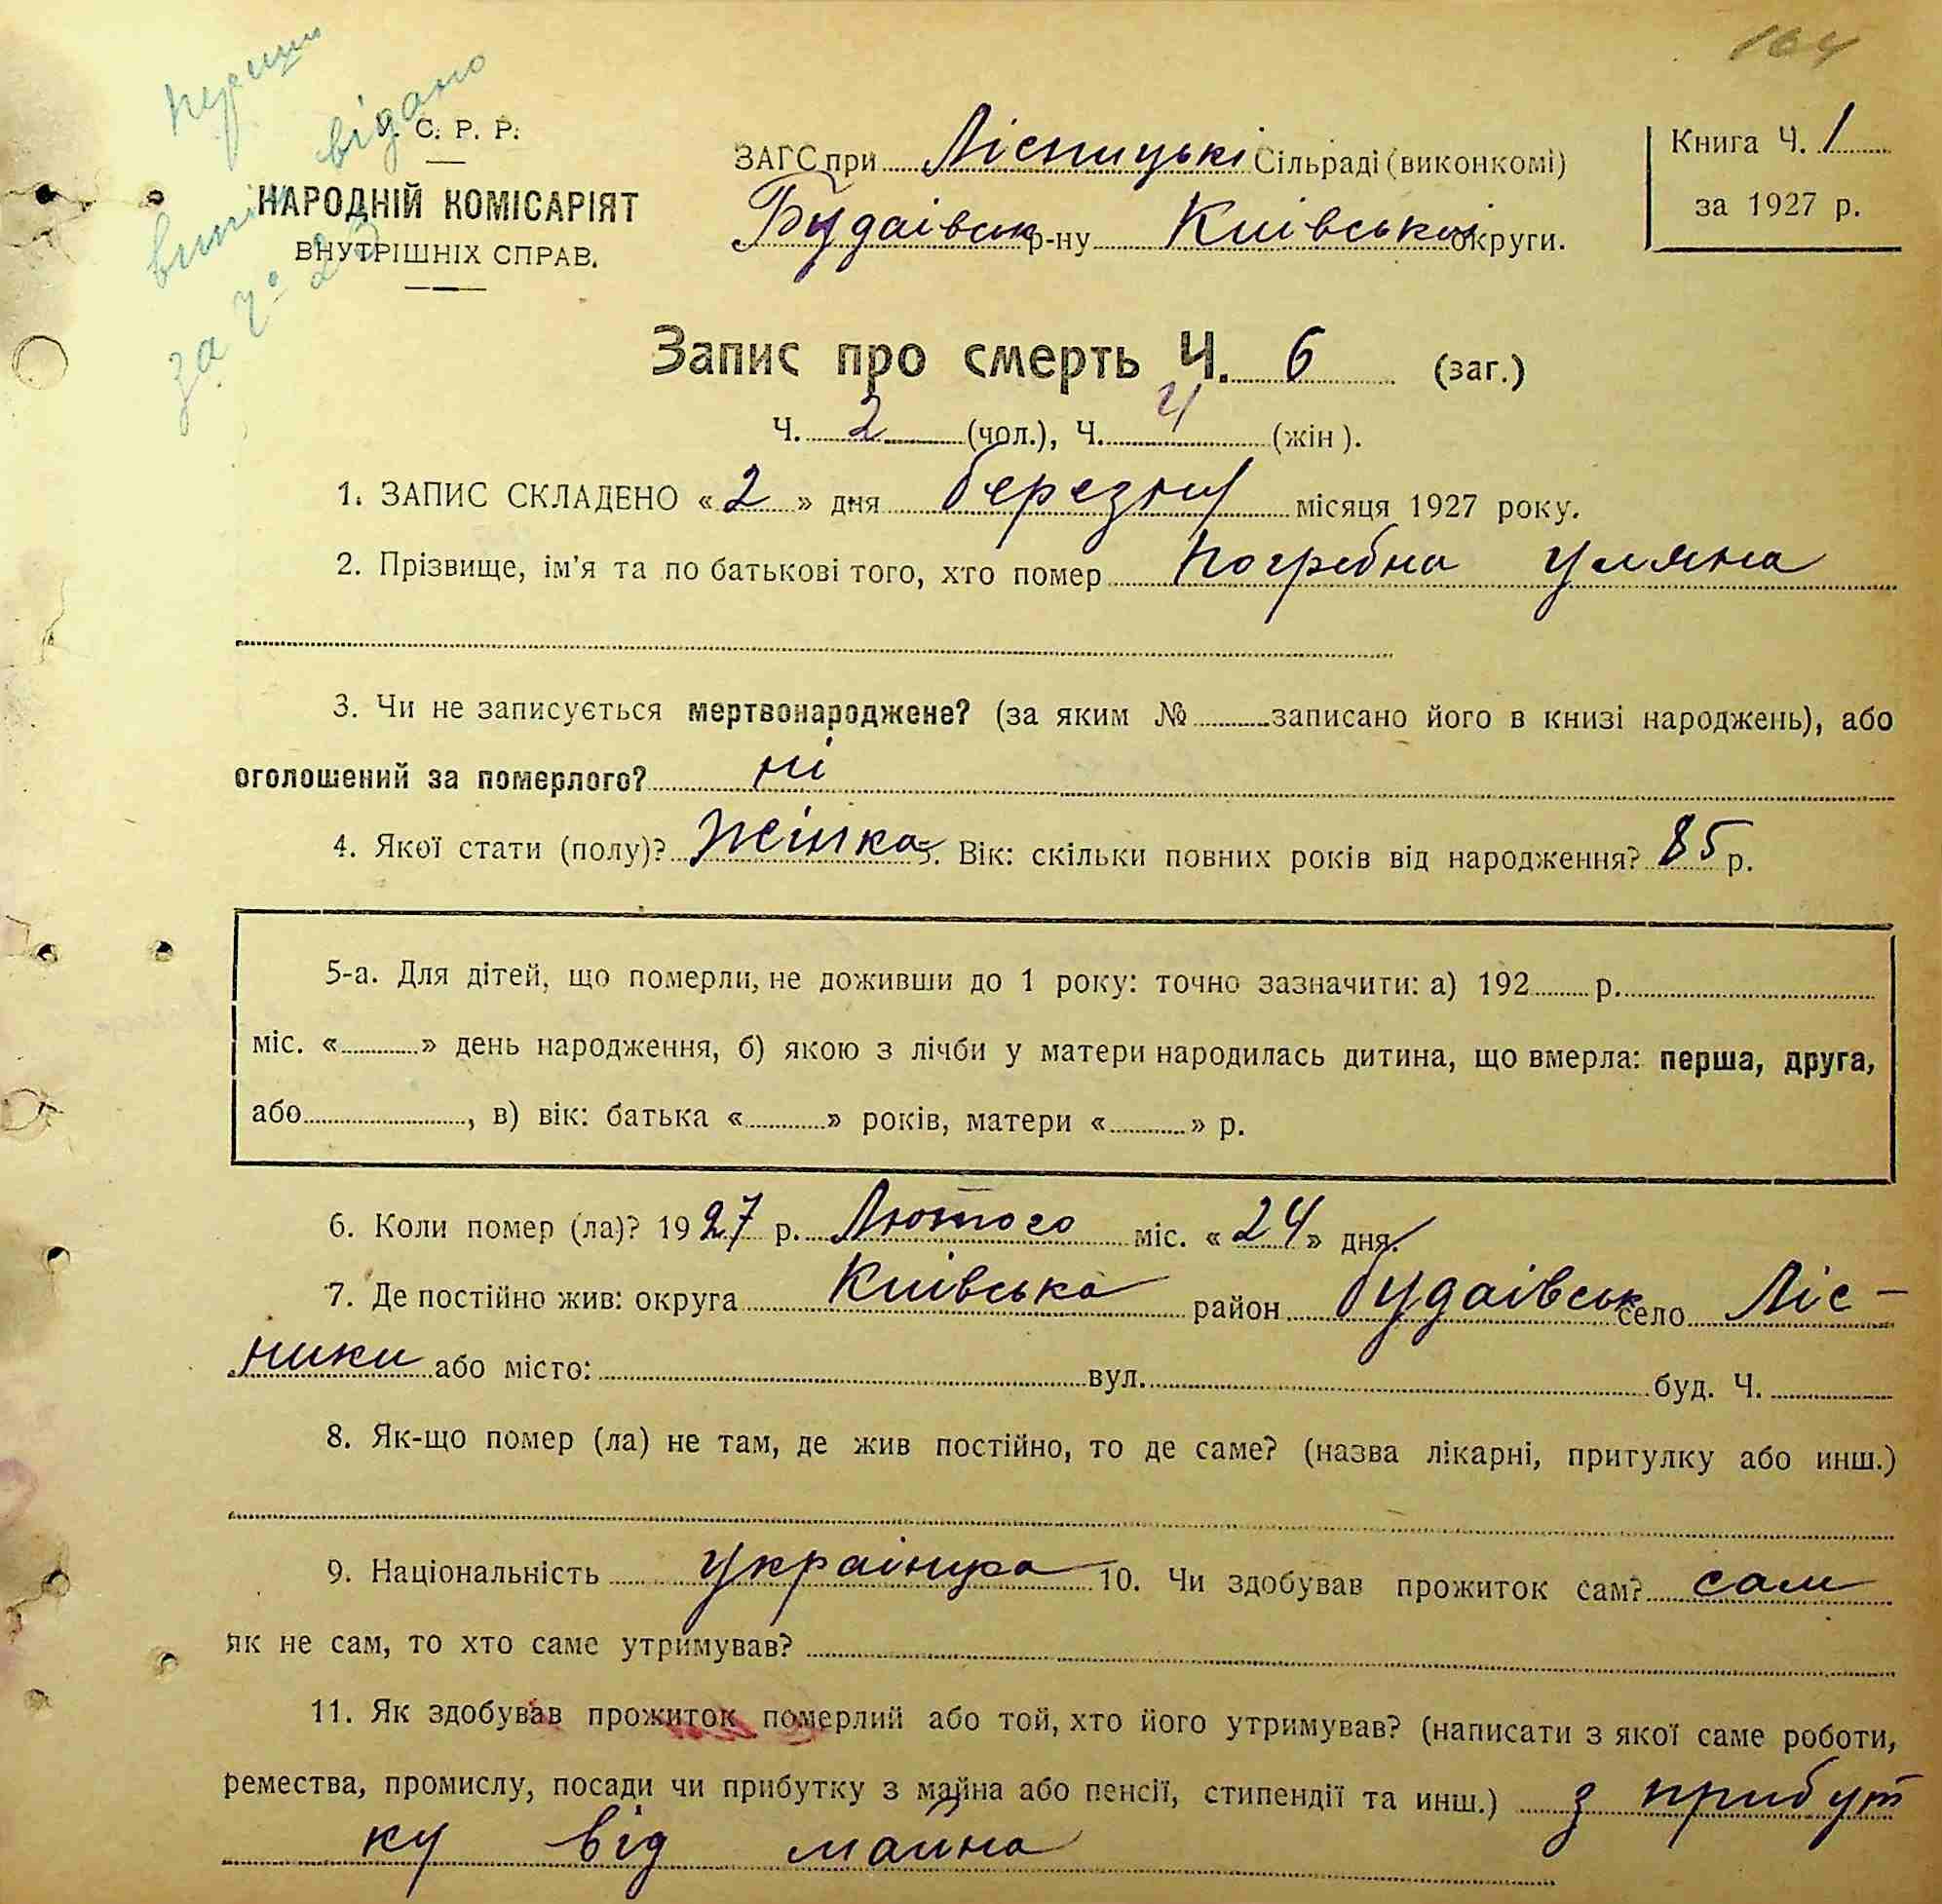 164
першу
випись видано
за ч° 23
У. С. Р. Р.
НАРОДНІЙ КОМІСАРІЯТ
ВНУТРІШНІХ СПРАВ.
ЗАГС при Лісницькі Сільраді (виконкомі)
Будаівськ р-ну Киівськоі округи.
Книга Ч. 1
за 1927 р.
Запис про смерть Ч. 6 (заг.)
Ч. 2 (чол.), Ч. 4 (жін).
1. ЗАПИС СКЛАДЕНО «2» дня березня місяця 1927 року.
2. Прізвище, ім'я та по батькові того, хто помер Погребна Уляна
3. Чи не записується мертвонароджене? (за яким № записано його в книзі народжень), або
оголошений за померлого? ні
4. Якої стати (полу)? Жінка 5. Вік: скільки повних років від народження? 85 р.
5-а. Для дітей, що померли, не доживши до 1 року: точно зазначити: а) 192 р.
міс. « » день народження, б) якою з лічби у матери народилась дитина, що вмерла: перша, друга,
або , в) вік: батька « » років, матери « » р.
6. Коли помер (ла)? 1927 р. Лютого міс. «24» дня.
7. Де постійно жив: округа Киівська район будаівськ село Ліс-
ники або місто: вул. буд. Ч.
8. Як-що помер (ла) не там, де жив постійно, то де саме? (назва лікарні, притулку або инш.)
9. Національність Украінка 10. Чи здобував прожиток сам? сам
як не сам, то хто саме утримував?
11. Як здобував прожиток померлий або той, хто його утримував? (написати з якої саме роботи,
ремества, промислу, посади чи прибутку з майна або пенсії, стипендії та инш.) з прибут
ку від майна